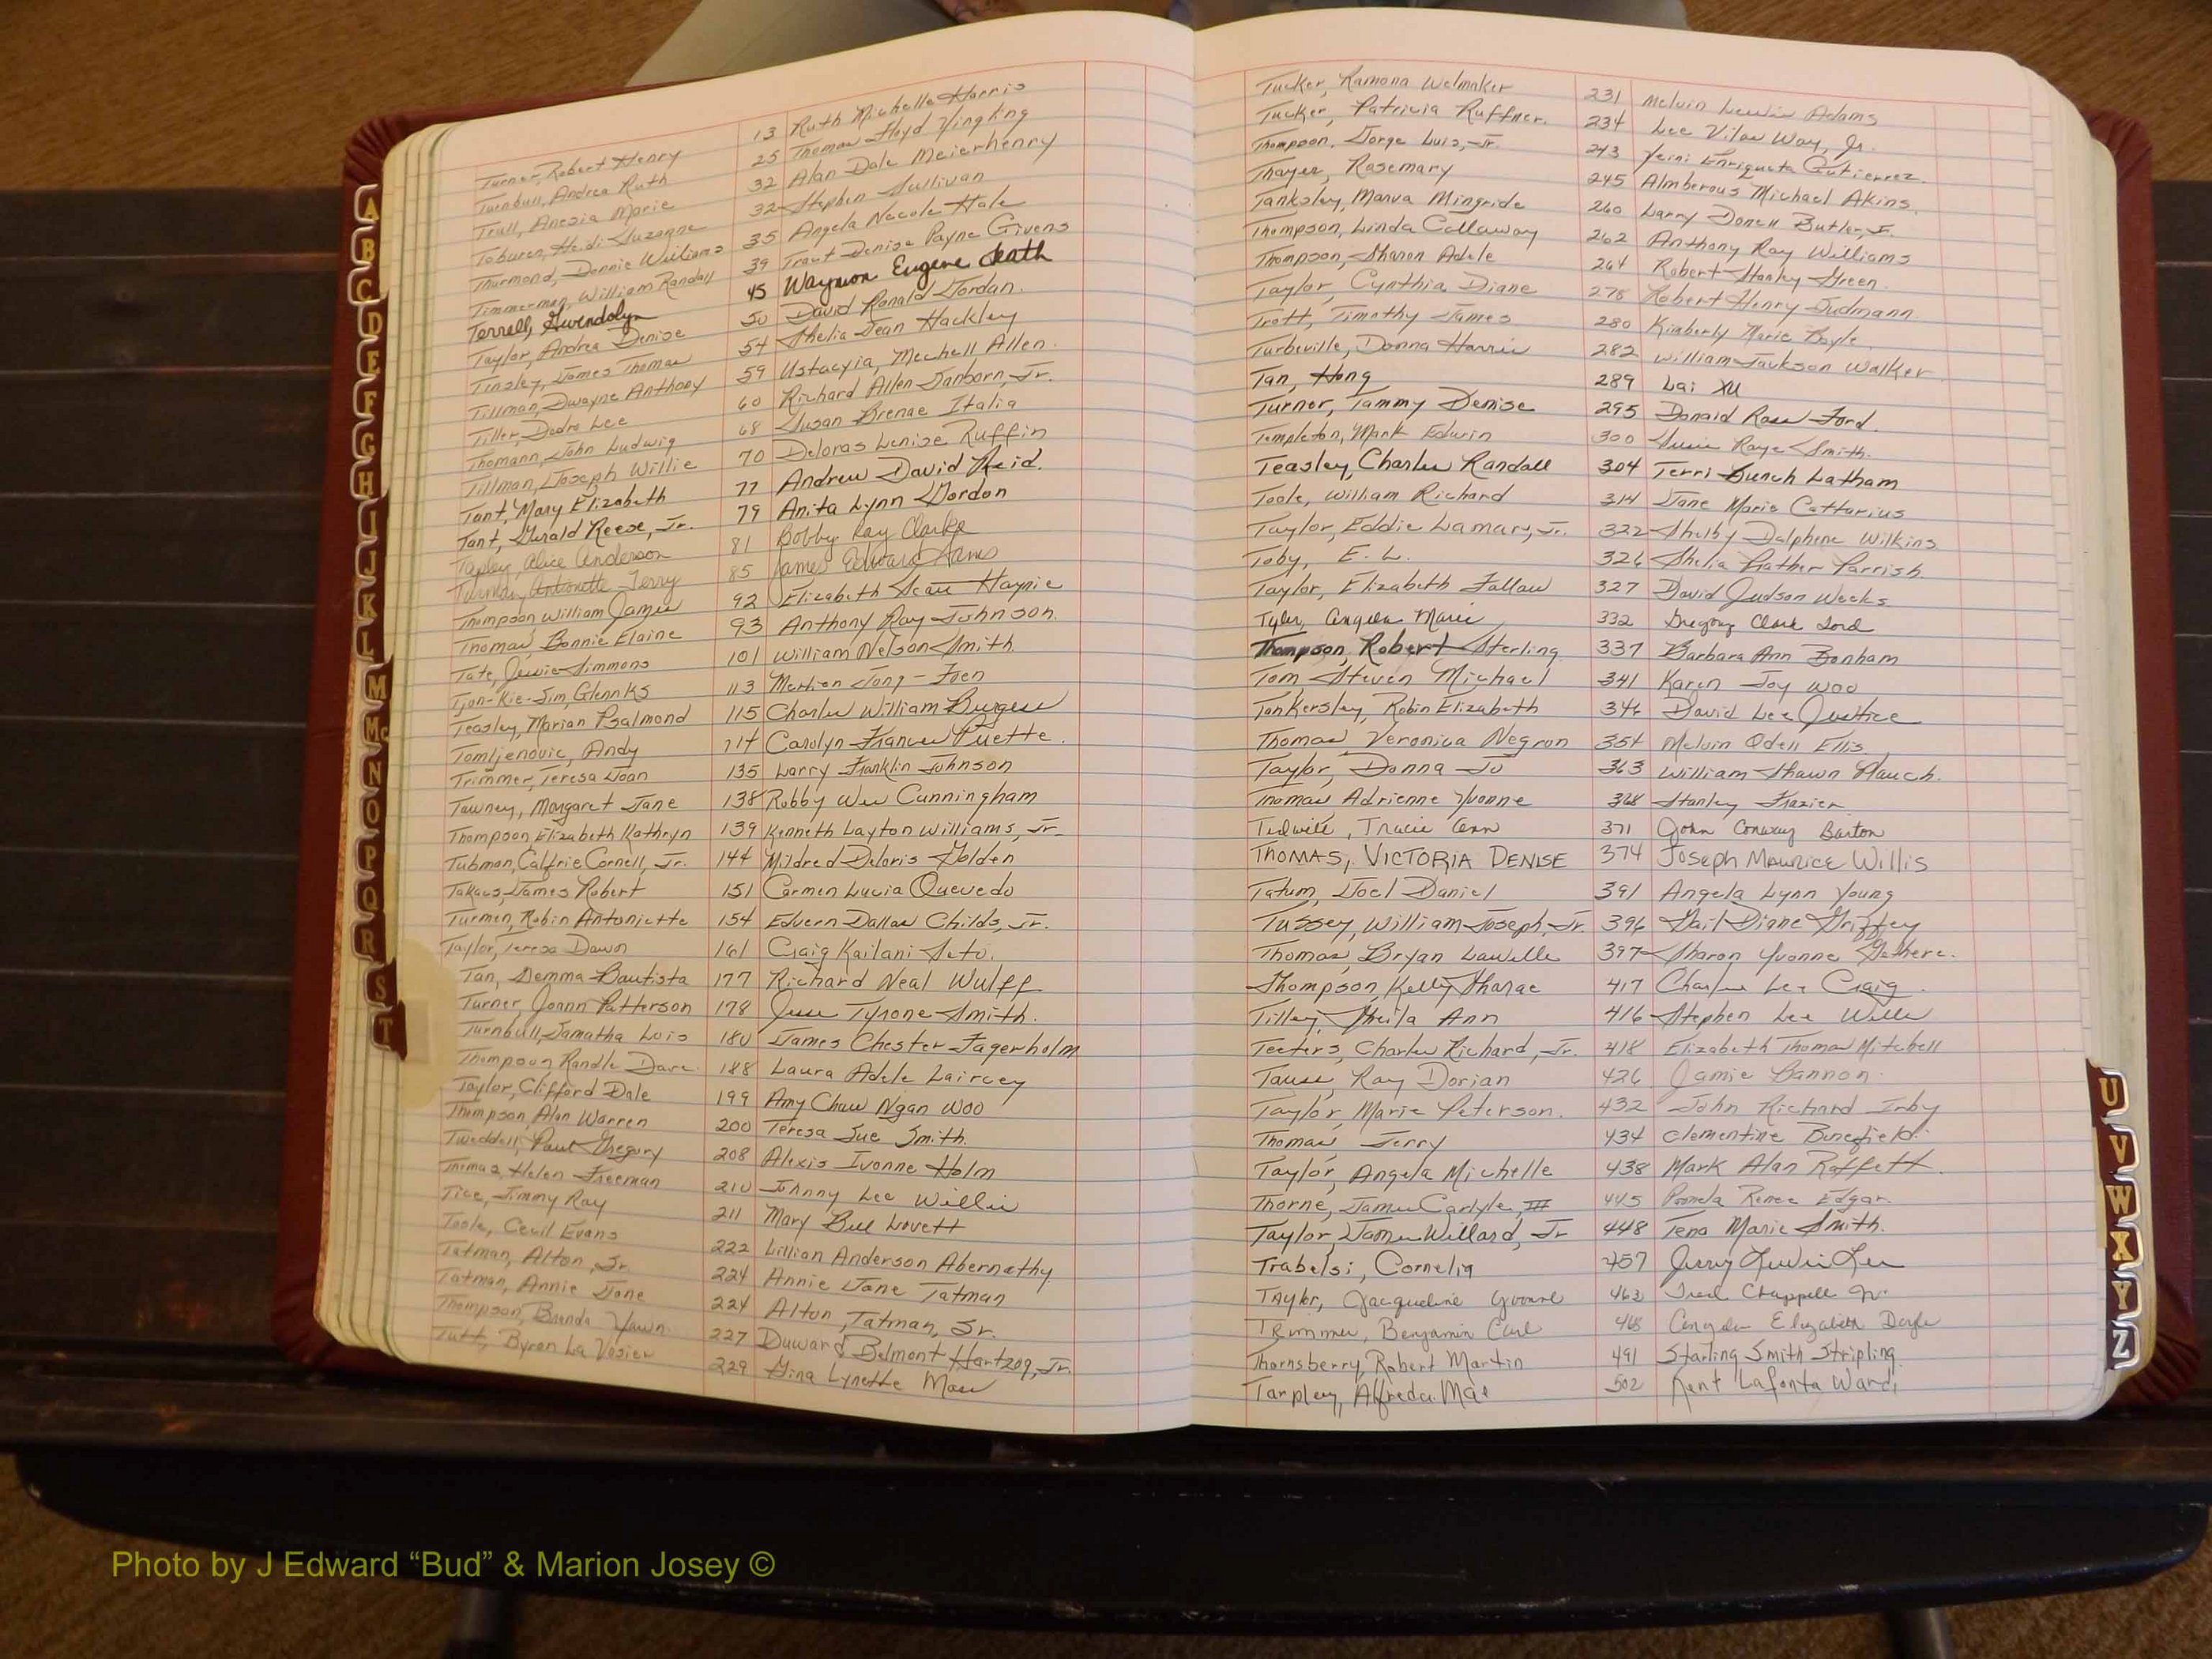 Turner, Robert Henry 13 Ruth Michelle Harris
Turnbull, Andrea Ruth 25 Thomas Floyd Yingling
Trull, Anesia Marie 32 Alan Dale Meierhenry
Toburen, Heidi Suzanne 32 Stephen Sullivan
Thurmond, Donnie Williams 35 Angela Necole Hale
Timmerman, William Randall 39 Traut Denise Payne Givens
Terrell, Gwendolyn 45 Waymon Eugene Heath
Taylor, Andrea Denise 50 David Ronald Jordan
Tinsley, James Thomas 54 Shelia Jean Hackley
Tillman, Dwayne Anthony 59 Ustacyia, Mechell Allen
Tiller, Dedra Lee 60 Richard Allen Sanborn, Jr.
Thomann, John Ludwig 68 Susan Brenae Italia
Tillman, Joseph Willie 70 Deloras Lenise Ruffin
Tant, Mary Elizabeth 77 Andrew David Reid
Tant, Gerald Reese, Jr. 79 Anita Lynn Gordon
Tapley, Alice Anderson 81 Bobby Ray Clarke
Antoinette Terry 85 James Edward Sams
Thompson, William James 92 Elizabeth Haynie
Thomas, Bonnie Elaine 93 Anthony Ray Johnson
Tate, Jessie Simmons 101 William Nelson Smith
Tjon-Kie-Sim, Glenn KS 113 Jong-Foen
Teasley, Marian Psalmond 115 Charles William Burgess
Tomljenovic, Andy 117 Carolyn Frances Puette
Trimmer, Teresa Joan 135 Larry Franklin Johnson
Tawney, Margaret Jane 138 Robby Wee Cunningham
Thompson, Elizabeth Kathryn 139 Kenneth Layton Williams, Jr.
Tubman, Calfrie Cornell, Jr. 144 Mildred Deloris Golden
Takacs, James Robert 151 Carmen Lucia Quevedo
Turmen, Robin Antoniette 154 Edvern Dallas Childs, Jr.
Taylor, Teresa Dawn 161 Craig Kailani Seto
Tan, Gemma Bautista 177 Richard Neal Wulff
Turner, Joann Patterson 178 Jesse Tyrone Smith
Turnbull, Samatha Lois 180 James Chester Fagerholm
Thompson, Randle Dave 188 Laura Adele Laircey
Taylor, Clifford Dale 199 Amy Chaw Ngan Woo
Thompson, Alan Warren 200 Teresa Sue Smith
Tweddell, Paul Gregory 208 Alexis Ivonne Holm
Thomas, Helen Freeman 210 Johnny Lee Willis
Tice, Jimmy Ray 211 Mary Bell Lovett
Toole, Cecil Evans 222 Lillian Anderson Abernathy
Tatman, Alton, Sr. 224 Annie Jane Tatman
Tatman, Annie Jane 224 Alton, Tatman, Sr.
Thompson, Brenda Yawn 227 Duward Belmont Hartzog, Jr.
Tutt, Byron La Vosier 229 Gina Lynette Moss
Tucker, Ramona Welmaker 231 Melvin Lewis Adams
Tucker, Patricia Ruffner 234 Lee Vilas Way, Jr.
Thompson, Jorge Luis, Jr. 243 Yeini Enriqueta Gutierrez
Thayer, Rosemary 245 Almberous Michael Akins
Tanksley, Marva Mingride 260 Larry Donell Butler, Jr.
Thompson, Linda Callaway 262 Anthony Ray Williams
Thompson, Sharon Adele 264 Robert Stanley Green
Taylor, Cynthia Diane 278 Robert Henry Sudmann
Trott, Timothy James 280 Kimberly Marie Boyle
Turbeville, Donna Harris 282 William Jackson Walker
Tan, Hong 289 Lai Xu
Turner, Tammy Denise 295 Donald Ross Ford
Templeton, Mark Edwin 300 Susie Raye Smith
Teasley, Charles Randall 304 Terri Bunch Latham
Toole, William Richard 314 Jane Marie Cattarius
Taylor, Eddie Lamars, Jr. 322 Shelby Dalphene Wilkins
Toby, E. L. 326 Shelia Prather Parrish
Taylor, Elizabeth Fallaw 327 David Judson Weeks
Tyler, Angela Marie 332 Gregory Clark Lord
Thompson, Robert Sterling 337 Barbara Ann Bonham
Tom Steven Michael 341 Karen Joy Woo
TanKersley, Robin Elizabeth 346 David Lee Justice
Thomas, Veronica Negron 354 Melvin Odell Ellis
Taylor, Donna Jo 363 William Shawn Hauch
Thomas Adrienne Yvonne 368 Stanley Frazier
Tidwell, Tracie Ann 371 John Conway Barton
THOMAS, VICTORIA DENISE 374 Joseph Maurice Willis
Tatum, Joel Daniel 391 Angela Lynn Young
Tussey, William Joseph, Jr. 396 Gail Diane Griffey
Thomas, Bryan Lawelle 397 Sharon Yvonne Gethers
Thompson, Kelly Sharae 417 Charles Lee Craig
Tilley, Sheila Ann 416 Stephen Lee Wells
Teeters, Charles Richard, Jr. 418 Elizabeth Thomas Mitchell
Ray Dorian 426 Jamie Bannon
Taylor, Marie Peterson 432 John Richard Irby
Thomas, Jerry 434 Clementine Benefield
Taylor, Angela Michelle 438 Mark Alan Raffett
Thorne, James Carlyle, III 445 Pamela Renee Edgar
Taylor, James Willard, Jr 448 Tena Marie Smith
Trabelsi, Cornelia 457 Jerry Lewis Lee
TAylor, Jacqueline Yvonne 463 Fred Chappell Jr.
TRimmer, Benjamin Carl 468 Angela Elizabeth Doyle
Thornsberry, Robert Martin 491 Starling Smith Stripling
Tarpley, Alfreda Mae 502 Kent Lafonta Ward
A
B
C
D
E
F
G
H
I
J
K
L
M
Mc
N
O
P
Q
R
S
T
U
V
W
X
Y
Z
Photo by J Edward “Bud” & Marion Josey ©